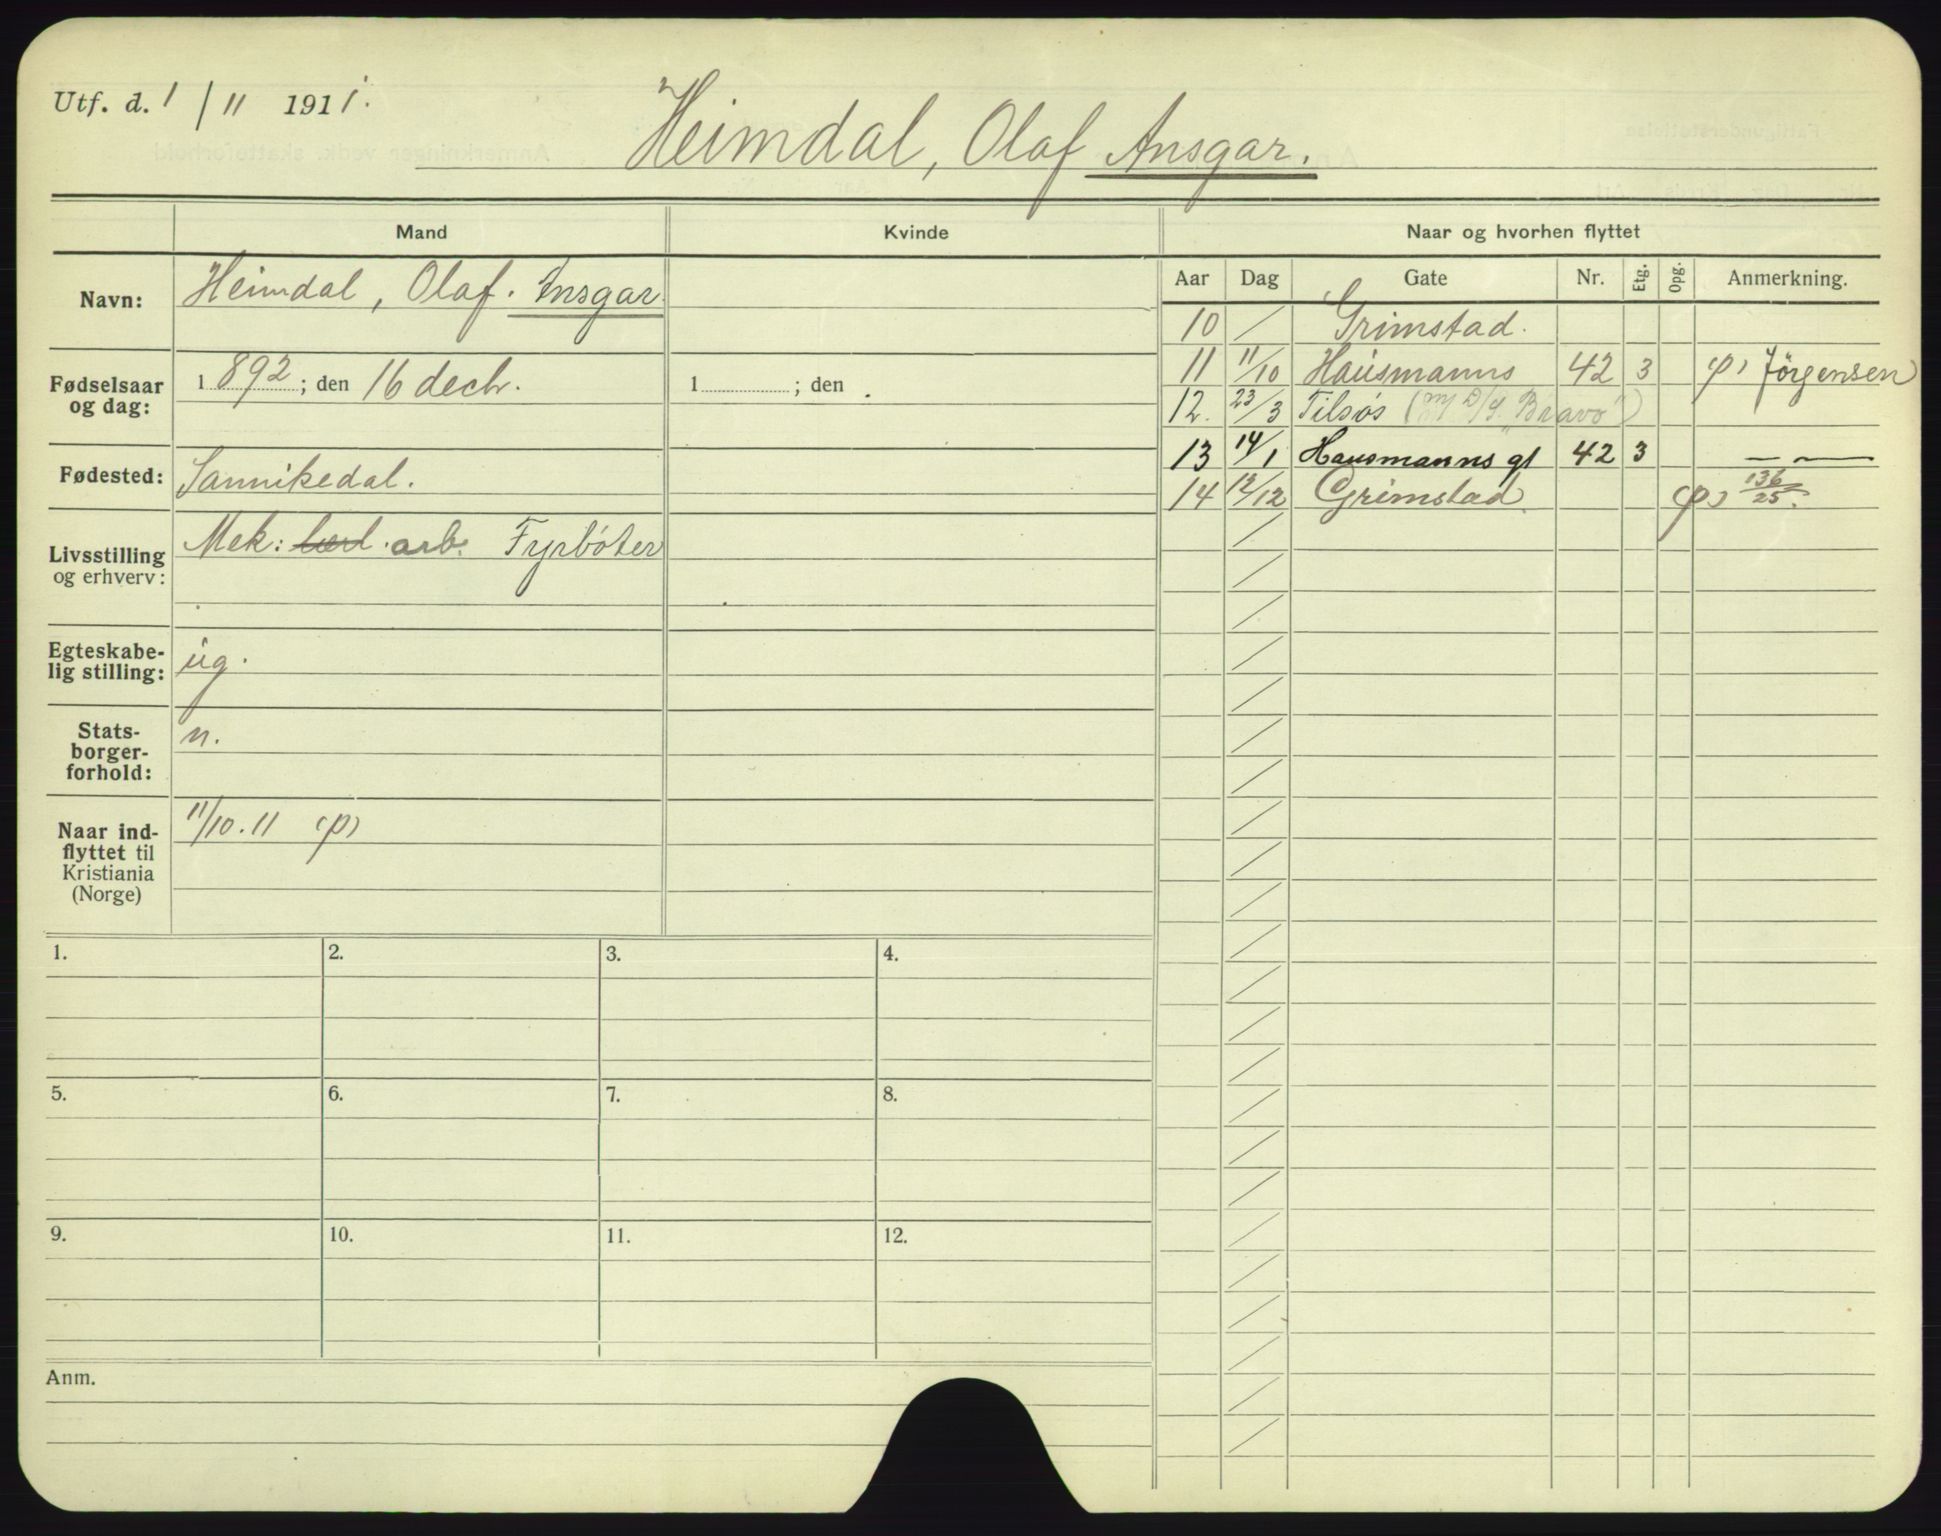 Utf. d. 1/11 1911.
Heimdal, Olaf Ansgar.
Mand
Kvinde
Naar og hvorhen flyttet
Navn:
Heimdal, Olaf. Ansgar.
Fødselsaar og dag:
1892; den 16 decbr.
1 ; den
Fødested:
Sannikedal.
Livsstilling og erhverv:
Mek: arb. Fyrbøter
Egteskabe-
lig stilling:
ug.
Stats-
borger-
forhold:
n.
Naar ind-
flyttet til
Kristiania
(Norge)
11/10.11 (p)
Aar Dag Gate Nr. Etg. Opg. Anmerkning.
10 / Grimstad.
11 11/10 Hausmanns 42 3 (p) Jørgensen
12. 23/3 Tilsøs (m/ D/S. "Bravo")
13 14/1 Hausmanns gt 42 3 — —
14 12/12 Grimstad. (p) 136/25.
1. 2. 3. 4.
5. 6. 7. 8.
9. 10. 11. 12.
Anm.